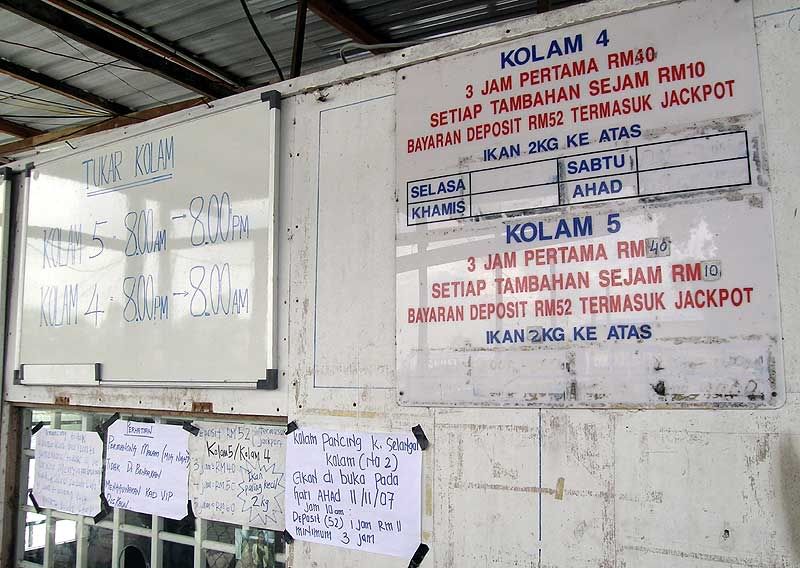 TUKAR KOLAM
KOLAM 5 - 8.00AM → 8.00PM
KOLAM 4 - 8.00PM → 8.00AM
KOLAM 4
3 JAM PERTAMA RM40
SETIAP TAMBAHAN SEJAM RM10
BAYARAN DEPOSIT RM52 TERMASUK JACKPOT
IKAN 2KG KE ATAS
SELASA SABTU
KHAMIS AHAD
KOLAM 5
3 JAM PERTAMA RM 40
SETIAP TAMBAHAN SEJAM RM 10
BAYARAN DEPOSIT RM52 TERMASUK JACKPOT
IKAN 2KG KE ATAS
PERHATIAN
PEMANCING MALAM
TIDAK DI BENARKAN
MENGGUNAKAN KAD VIP
DEPOSIT RM 52 TERMASUK JACKPOT
KOLAM 5/KOLAM 4
= RM40
= RM50
= RM60
IKAN
PALING KECIL
2kg
KOLAM PANCING K. SELANGOR
KOLAM (NO 2)
AKAN DI BUKA PADA
HARI AHAD 11/11/07
JAM 10am:
DEPOSIT (52) 1 JAM RM 11
MINIMUM 3 JAM